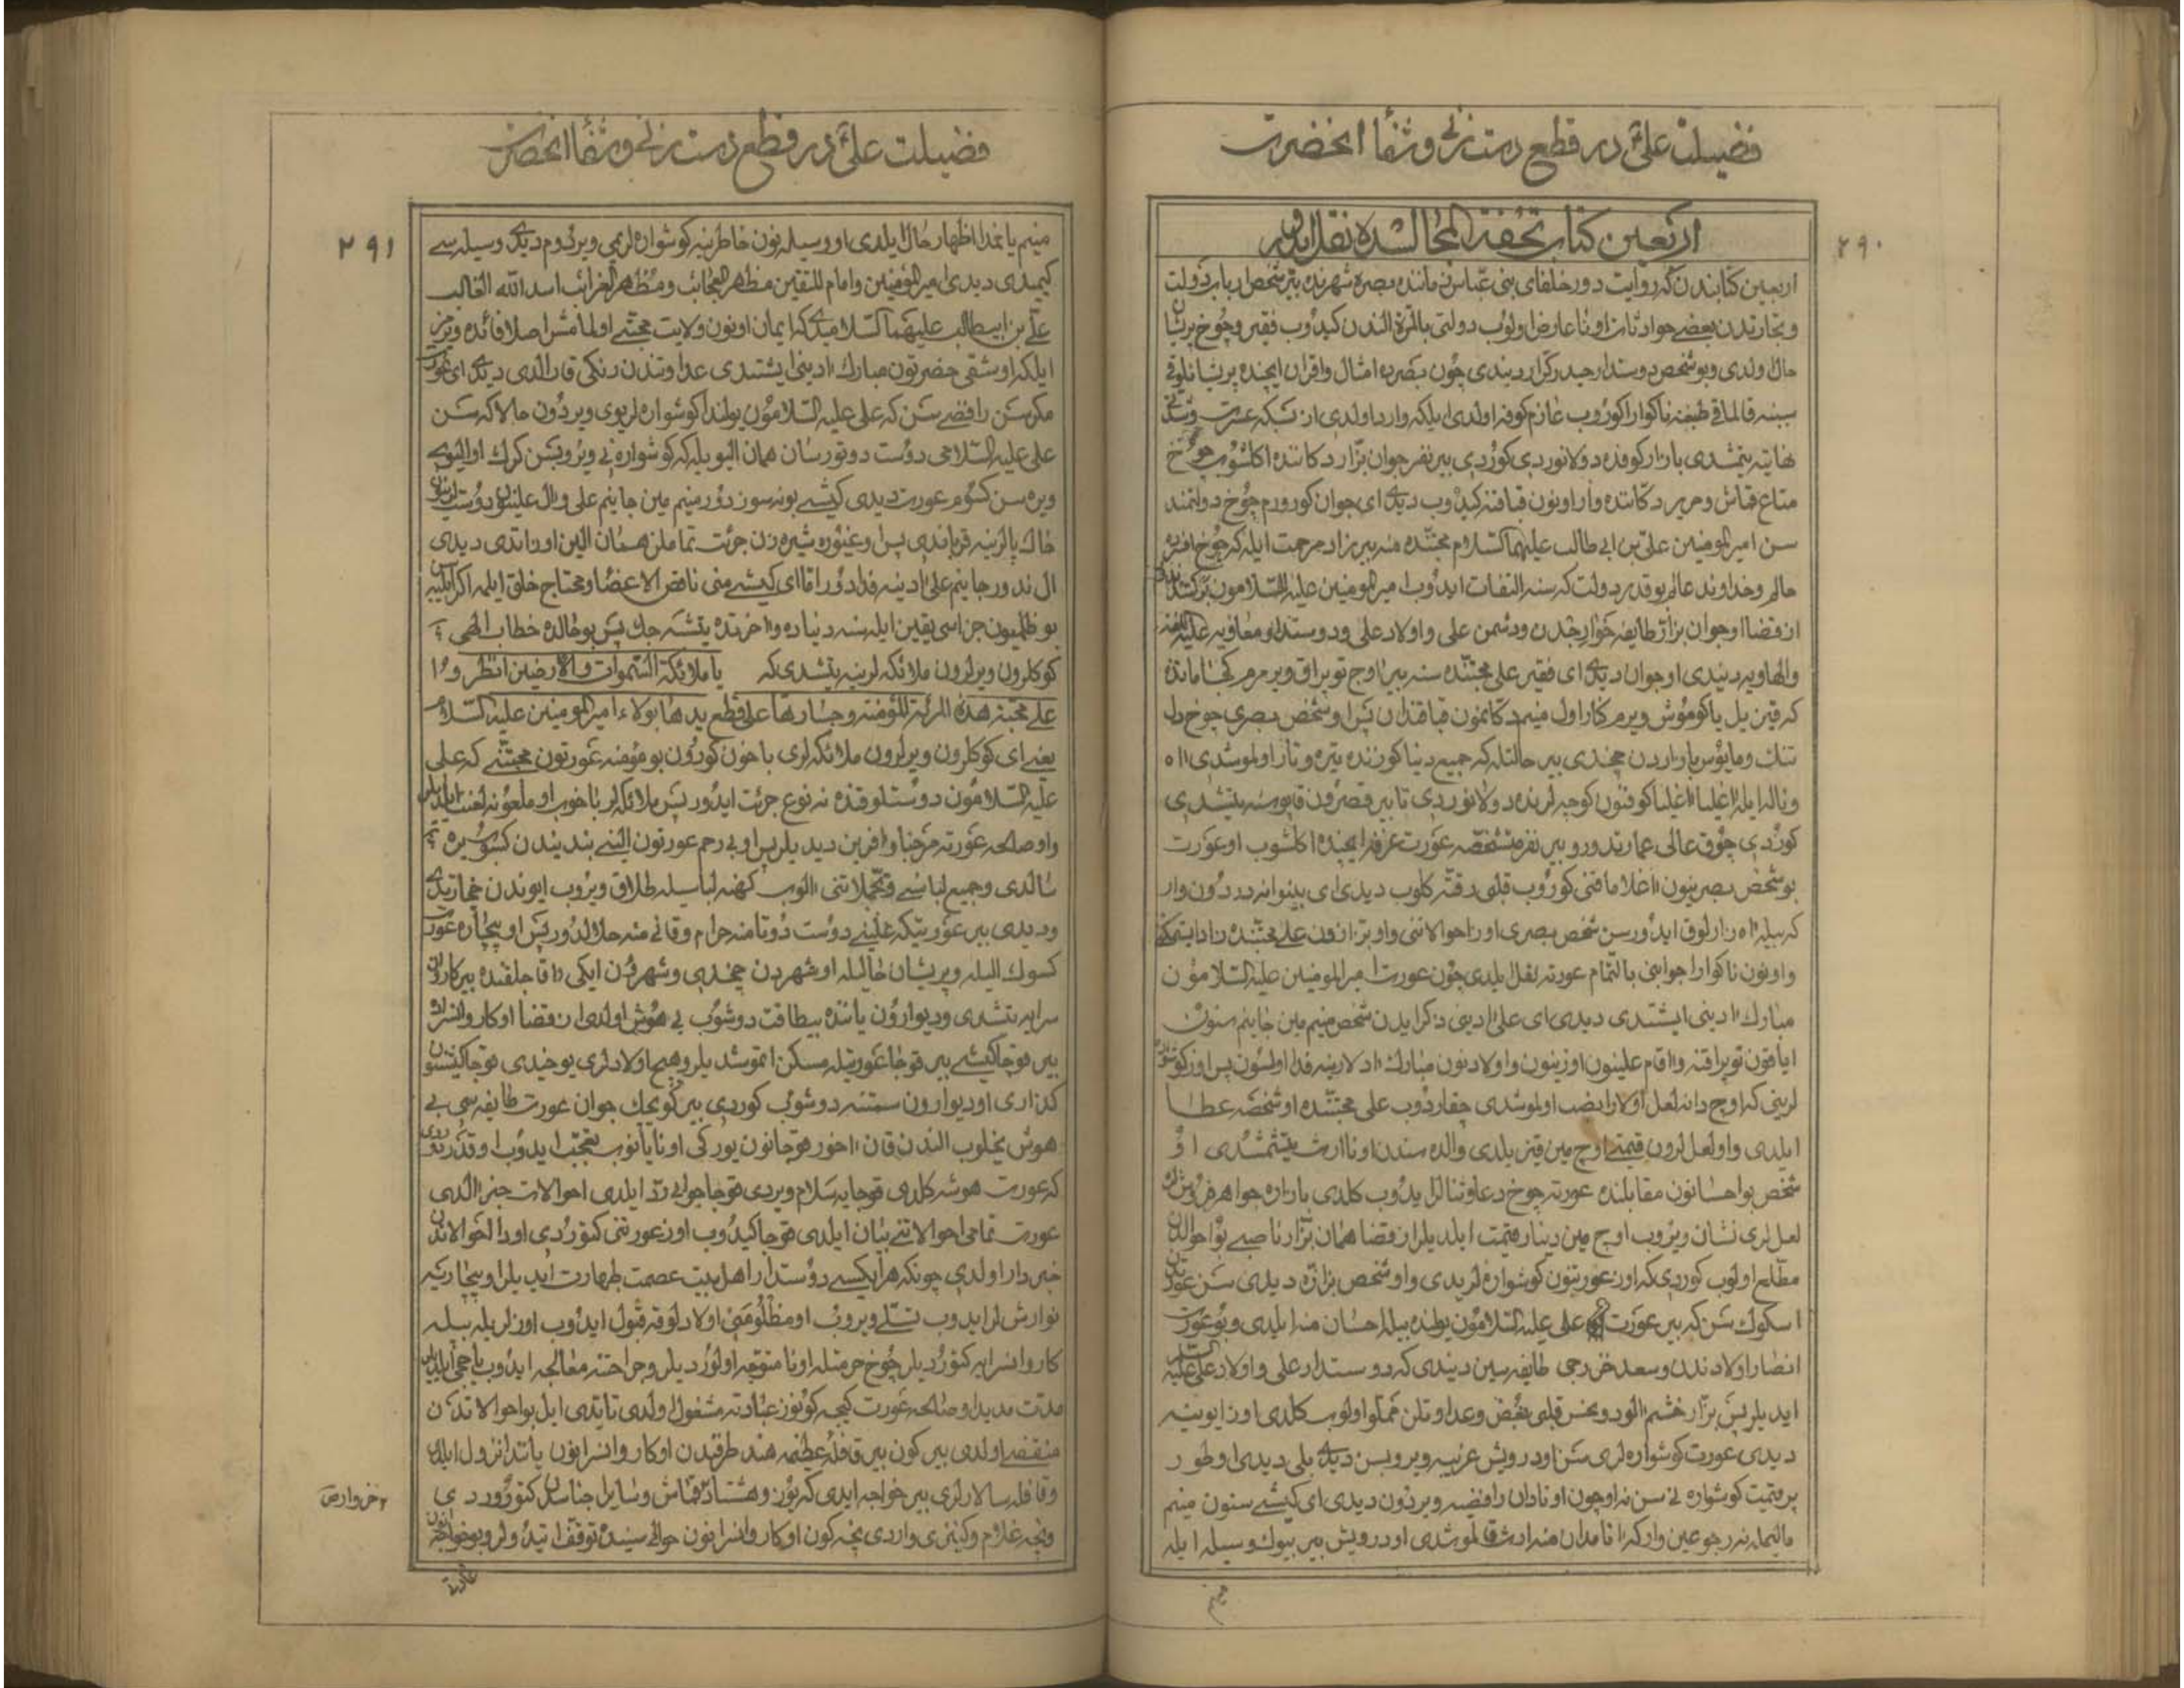 فضیلت علیؑ در قطع دست زنی و شفا انحضرت
۲۹۰
اربعین کتاب تحفة المجالسده نقل ایدوبلر
اربعین کتابندن که روایت دور خلفای بنی عباس زماننده بصره شهرنده بیر شخص ارباب دولت
و تجارتدن بعضی حوادثات اونا عارض اولوب دولتی بالمرة الندن کیدوب فقیر و چوخ پریشان
حال اولدی و بو شخص دوستدار حیدر کرار دیندی چون بصره ده امثال و اقران ایچنده پریشانلوقی
سینه قالماقی طبعنه ناکوارا کوروب عازم کوفه اولدی ایلکه وارد اولدی از بسکه عسرت و تنکی
نهایته یتمشدی بازار کوفه ده دولانوردی کوردی بیر نفر جوان بزاز دکاننده اکلشوب چوخ
متاع قماش و حریر دکاننده وار اونون قباقنه کیدوب دیدی ای جوان کورورم چوخ دولتمند
سن امیرالمومنین علی بن ابی طالب علیهما السلام محبتنده منه بیر زاد مرحمت ایله که چوخ افسرده
حالم و خداوند عالم بو قدر دولت که سنه التفات ایدوب امیر المومنین علیه السلامون برکتندندی
از قضا او جوان بزاز طایفه خوارجدن و دشمن علی و اولاد علی و دوستدار معاویه علیه اللعنه
والهاویه دیندی او جوان دیدی ای فقیر علی محبتنده سنه بیر اوج توپراق ویرمرم کجا مانده
که قیزیل یا کوموش ویرم کنار اول منیم دکانمون قباقندان پس او شخص بصری چوخ دل
تنک و مایوس بازاردن چخدی بیر حالتله که جمیع دنیا کوزنده تیره و تار اولموشدی اه
و ناله ایله اغلیا اغلیا کوفنون کوچه لرنده دولانوردی تا بیر قصرون قاپوسنه یتشدی
کوردی چوق عالی عمارتدور و بیر نفر مشخصه عورت غرفه ایچنده اکلشوب او عورت
بو شخص بصرینون اغلاماقنی کوروب قلبی رقته کلوب دیدی ای بینوا نه دردون وار
که بیله اه زارلوق ایدورسن شخص بصری اوز احوالاتنی و او بزازدن علی محبتنده زاد ایستمکنی
و اونون ناکوارا جوابنی بالتمام عورته نقل ایلدی چون عورت امیر المومنین علیه السلامون
مبارک ادینی ایشتدی دیدی ای علی ادینی ذکر ایدن شخص منیم مین جانیم سنون
ایاقون توپراقنه و اقام علینون اوزینون و اولادنون مبارک ادلارینه فدا اولسون پس اوز کوشواره
لرینی که اوچ دانه لعل اولارا نصب اولموشدی چقاردوب علی محبتنده او شخصه عطا
ایلدی و او لعل لرون قیمتی اوچ مین قیزیلدی والده سندن اونا ارث یتشمشدی او
شخص بو احسانون مقابلنده عورته چوخ دعا و ثنا لر ایدوب کلدی بازاره جواهر فروشلره
لعل لری نشان ویروب اوچ مین دینار قیمت ایلدیلر از قضا همان بزاز ناصبی بو احوالدن
مطلع اولوب کوردی که اوز عورتنون کوشواره لریدی و او شخص بزازه دیدی سن عورتدن
اسکوک سن که بیر عورت علی علیه السلامون یولنده بیله احسان منه ایلدی و بو عورت
انصار اولادندن و سعد خزرجی طایفه سیندیندی که دوستدار علی و اولاد علی علیه السلام
ایدیلر پس بزاز خشم الود و نحس قلبی بغض و عداوتلن مملو اولوب کلدی اوز ایوینه
دیدی عورت کوشواره لری سن او درویش غریبه ویروبسن دیدی بلی دیدی او طور
پر قیمت کوشواره نی سن نه اوچون او نادان رافضیه ویردون دیدی ای کیشی سنون منیم
مالیمه نه رجوعین وار که انامدان منه ارث قالموشدی او درویش بیر بیوک وسیله ایله
منیم
فضیلت علیؑ در قطع دست زنی و شفا انحضرت
۲۹۱
منیم یانمدا اظهار حال ایلدی او وسیله نون خاطرینه کوشواره لریمی ویردوم دیدی وسیله سی
کیمیدی دیدی امیر المومنین و امام المتقین مظهر العجائب و مظهر الغرائب اسد الله الغالب
علی بن ابیطالب علیهما السلامیدی که ایمان اونون ولایت محبتی اولمامش اصلا فائده ویرمز
ایلکه او شقی حضرتون مبارک ادینی ایشتدی عداوتندن رنکی قارالدی دیدی ای عورت
مکر سن رافضی سن که علی علیه السلامون یولندا کوشواره لریوی ویردون حالا که سن
علی علیه السلامی دوست دوتورسان همان الیو یله که کوشواره نی ویروبسن کرک او الیوی
ویره سن کسوم عورت دیدی کیشی بو نه سوزدور منیم مین جانیم علی و ال علینون دوست لرینون
خاک پالرینه قرباندی پس او غیوره شیره زن جرئت تماملن همان الین اوزاتدی دیدی
ال ندور جانیم علی ادینه فدادور اما ای کیشی منی ناقص الاعضا و محتاج خلق ایلمه اکر ایلیه سن
بو ظلمیون جزاسی یقین ایله سنه دنیاده و اخرتده یتشه جک پس بو حالده خطاب الهی
کوکلرون ویرلرون ملائکه لرینه یتشدی که یا ملائکة السموات والارضین انظروا
علی محبة هذه المرئة المؤمنة وجسارتها علی قطع یدها بولاء امیر المومنین علیه السلام
یعنی ای کوکلرون ویرلرون ملائکه لری باخون کورون بو مؤمنه عورتون محبتنی که علی
علیه السلامون دوستلوقنده نه نوع جرئت ایدور پس ملائکه لر باخوب او ملعونه لعنت ایلدیلر
و او صالحه عورته مرحبا و افرین دیدیلر پس او بی رحم عورتون الینی بند بندن کسوب یره
سالدی و جمیع لباسی و تجملاتنی الوب کهنه لباسیله طلاق ویروب ایوندن چخارتدی
و دیدی بیر عورتیکه علینی دوست دوتا منه حرام و قانی منه حلالدور پس او بیچاره عورت
کسوک الیله و پریشان حالیله او شهردن چخدی و شهردن ایکی اقاج لقنده بیر کاروان
سرایه یتشدی و دیوارون یاننده بیطاقت دوشوب بی هوش اولدی از قضا او کاروانسراده
بیر قوجا کیشی بیر قوجا عورتیله مسکن اتموشدیلر و هیچ اولادلری یوخیدی قوجا کیشنون
کذاری او دیوارون سمتنه دوشوب کوردی بیر کویچک جوان عورت طایفه سی بی
هوش یخلوب الندن قان اخور قوجانون یورکی اونا یانوب تعجب ایدوب او قدر دوردی
که عورت هوشه کلدی قوجایه سلام ویردی قوجا جوابی رد ایلدی احوالات خبر الدی
عورت تمامی احوالاتنی بیان ایلدی قوجا کیدوب اوز عورتنی کتوردی او دا احوالاتدن
خبردار اولدی چونکه هر ایکسی دوستدار اهل بیت عصمت طهارت ایدیلر او بیچاریه
نوازش لر ایدوب تسلی ویروب او مظلومه نی اولادلوقه قبول ایدوب اوزلریله بیله
کاروانسرایه کتوردیلر چوخ حرمتله اونا متوجه اولوردیلر و جراحتنه معالجه ایدوب یاخچی ایلدیلر
مدت مدید او صالحه عورت کیجه کونوز عبادته مشغول اولدی تا یدی ایل بو احوالاتدن
منقضی اولدی بیر کون بیر قافله عظیمه هند طرفیندن او کاروانسرانون یانندا نزول ایلدی
و قافله سالارلری بیر خواجه ایدی که یوز و هشتاد قماش و سایر اجناسلن کتوروردی
۲خروارمن
و نچه غلام و کنیزی واردی نچه کون او کاروانسرانون حوالی سینده توقف ایتدولر و بو خواجه نون